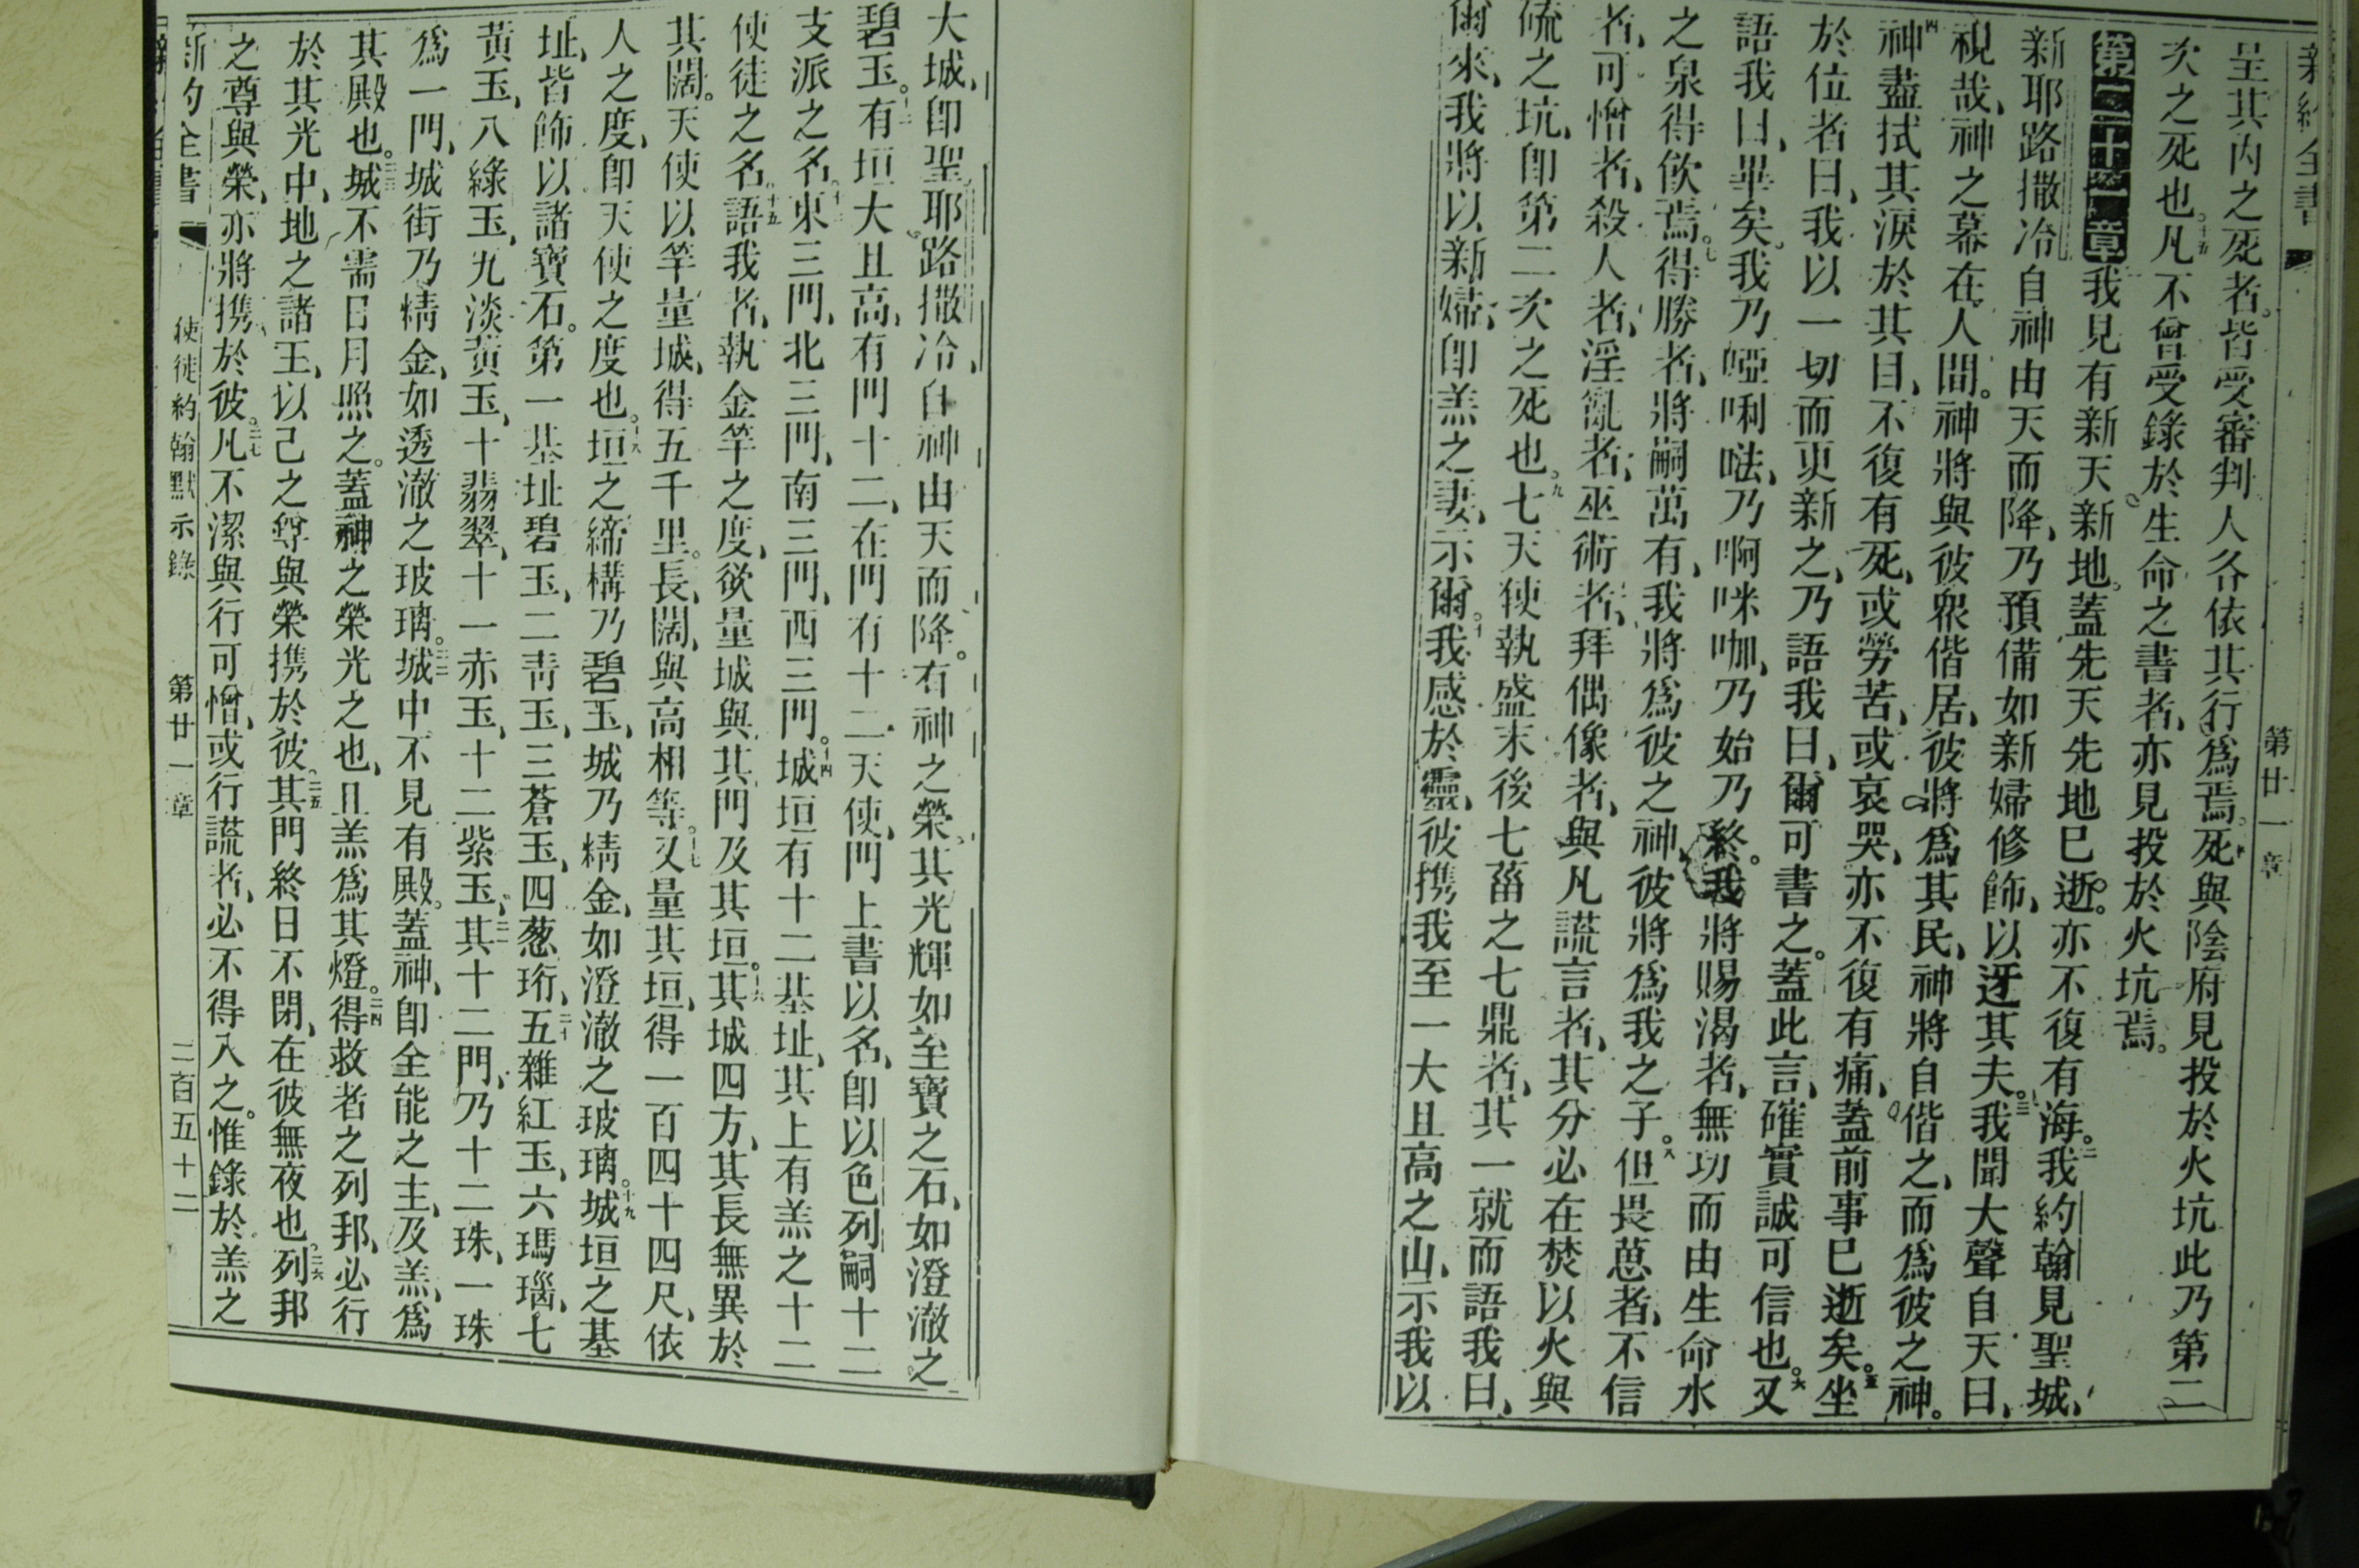 新約全書 第廿一章
呈其內之死者。皆受審判人各依其行爲焉。十四死與陰府見投於火坑此乃第二
次之死也。十五凡不曾受錄於生命之書者、亦見投於火坑焉。
第二十一章我見有新天新地。蓋先天先地已逝。亦不復有海。二我約翰見聖城、
新耶路撒冷自神由天而降、乃預備如新婦修飾、以迓其夫。三我聞大聲自天曰、
視哉、神之幕在人間。神將與彼衆偕居、彼將爲其民、神將自偕之、而爲彼之神。
四神盡拭其淚於其目、不復有死、或勞苦、或哀哭、亦不復有痛、蓋前事已逝矣。五坐
於位者曰、我以一切而更新之、乃語我曰、爾可書之。蓋此言、確實誠可信也。六又
語我曰、畢矣。我乃啞唎𠵽、乃啊咪咖、乃始乃終。我將賜渴者、無功而由生命水
之泉得飲焉。七得勝者、將嗣萬有、我將爲彼之神、彼將爲我之子。八但畏葸者、不信
者、可憎者、殺人者、淫亂者、巫術者、拜偶像者、與凡謊言者、其分必在焚以火與
硫之坑、卽第二次之死也。九七天使執盛末後七菑之七鼎者、其一就而語我曰、
爾來、我將以新婦、卽羔之妻、示爾。十我感於靈、彼携我至一大且高之山、示我以
大城、卽聖耶路撒冷、自神由天而降。有神之榮。其光輝如至寶之石、如澄澈之
碧玉。十二有垣大且高、有門十二、在門有十二天使、門上書以名、卽以色列嗣十二
支派之名。十三東三門、北三門、南三門、西三門。十四城垣有十二基址、其上有羔之十二
使徒之名。十五語我者、執金竿之度、欲量城與其門及其垣。十六其城四方、其長無異於
其闊。天使以竿量城、得五千里。長、闊、與高相等。十七又量其垣、得一百四十四尺、依
人之度、卽天使之度也。十八垣之締構乃碧玉、城乃精金、如澄澈之玻璃。十九城垣之基
址、皆飾以諸寶石。第一基址碧玉、二青玉、三蒼玉、四葱珩、二十五雜紅玉、六瑪瑙、七
黃玉、八綠玉、九淡黃玉、十翡翠、十一赤玉、十二紫玉。二一其十二門、乃十二珠、一珠
爲一門、城街乃精金、如透澈之玻璃。二二城中不見有殿。蓋神、卽全能之主、及羔、爲
其殿也。二三城不需日月照之。蓋神之榮光之也、且羔爲其燈。二四得救者之列邦、必行
於其光中、地之諸王、以己之尊與榮携於彼。二五其門終日不閉、在彼無夜也。二六列邦
之尊與榮、亦將携於彼。二七凡不潔與行可憎、或行謊者、必不得入之。惟錄於羔之
新約全書 使徒約翰默示錄 第廿一章 二百五十二